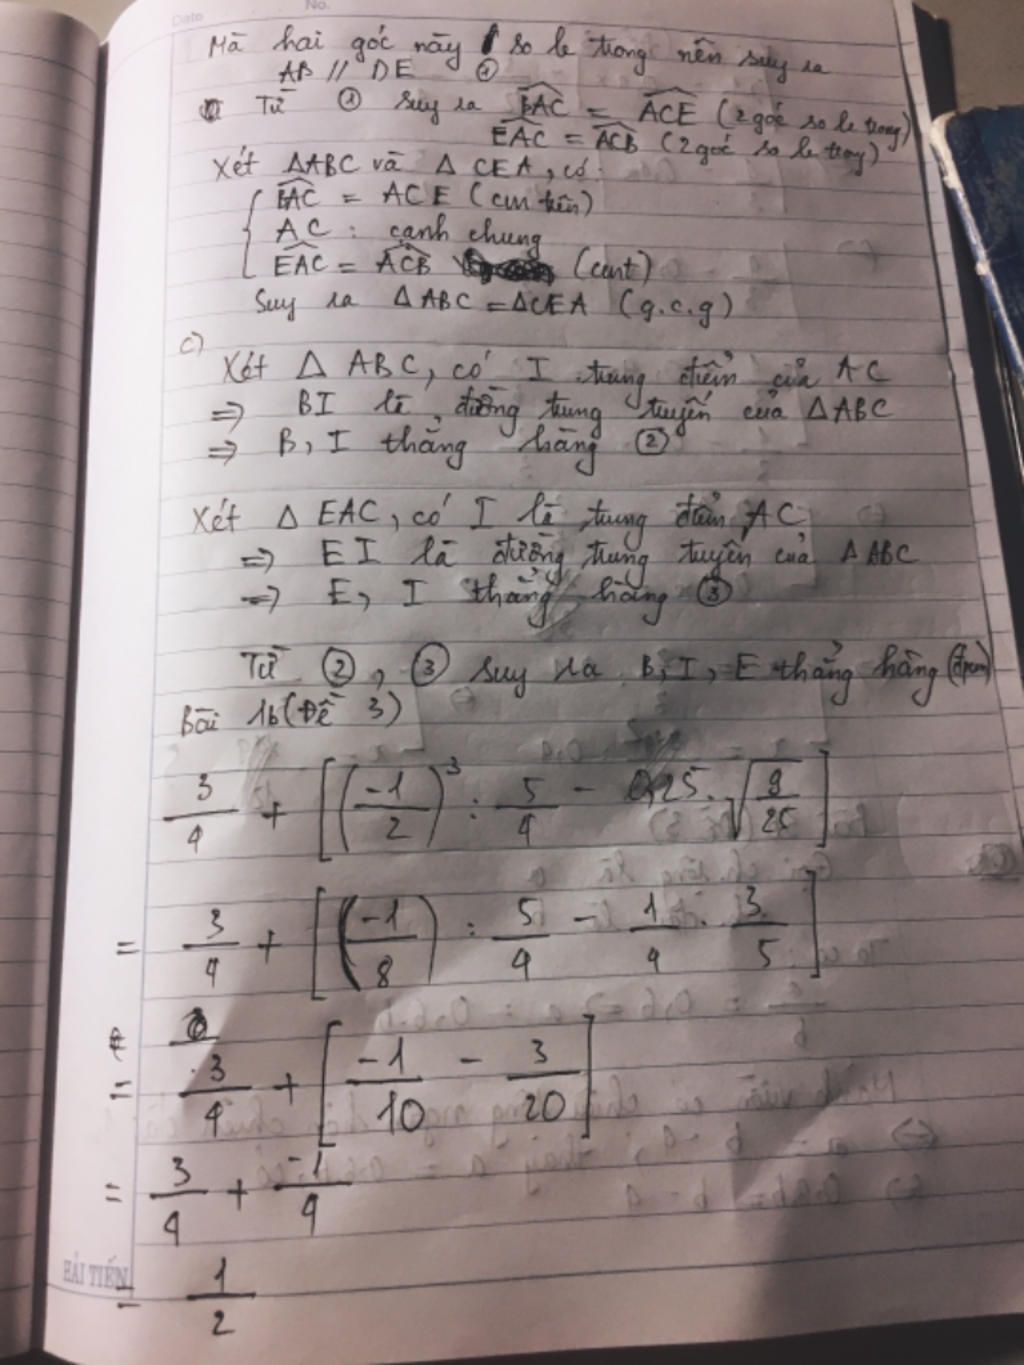 Date No.
Mà hai góc này so le trong nên suy ra
AB // DE ①
Từ ① suy ra BAC = ACE (2 góc so le trong)
EAC = ACB (2 góc so le trong)
Xét ΔABC và Δ CEA, có:
BAC = ACE (cm trên)
AC : cạnh chung
EAC = ACB (cmt)
Suy ra ΔABC = ΔCEA (g.c.g)
c)
Xét Δ ABC, có I trung điểm của AC
=> BI là đường trung tuyến của ΔABC
=> B, I thẳng hàng ②
Xét Δ EAC, có I là trung điểm AC
=> EI là đường trung tuyến của Δ ABC
=> E, I thẳng hàng ③
Từ ②, ③ suy ra B, I, E thẳng hàng (đpcm)
Bài 1b (Đề 3)
3/4 + [(-1/2)^3 : 5/4 - 0,25. √(9/25)]
= 3/4 + [(-1/8) : 5/4 - 1/4 . 3/5]
= 3/4 + [-1/10 - 3/20]
= 3/4 + -1/4
= 1/2
HẢI TIẾN